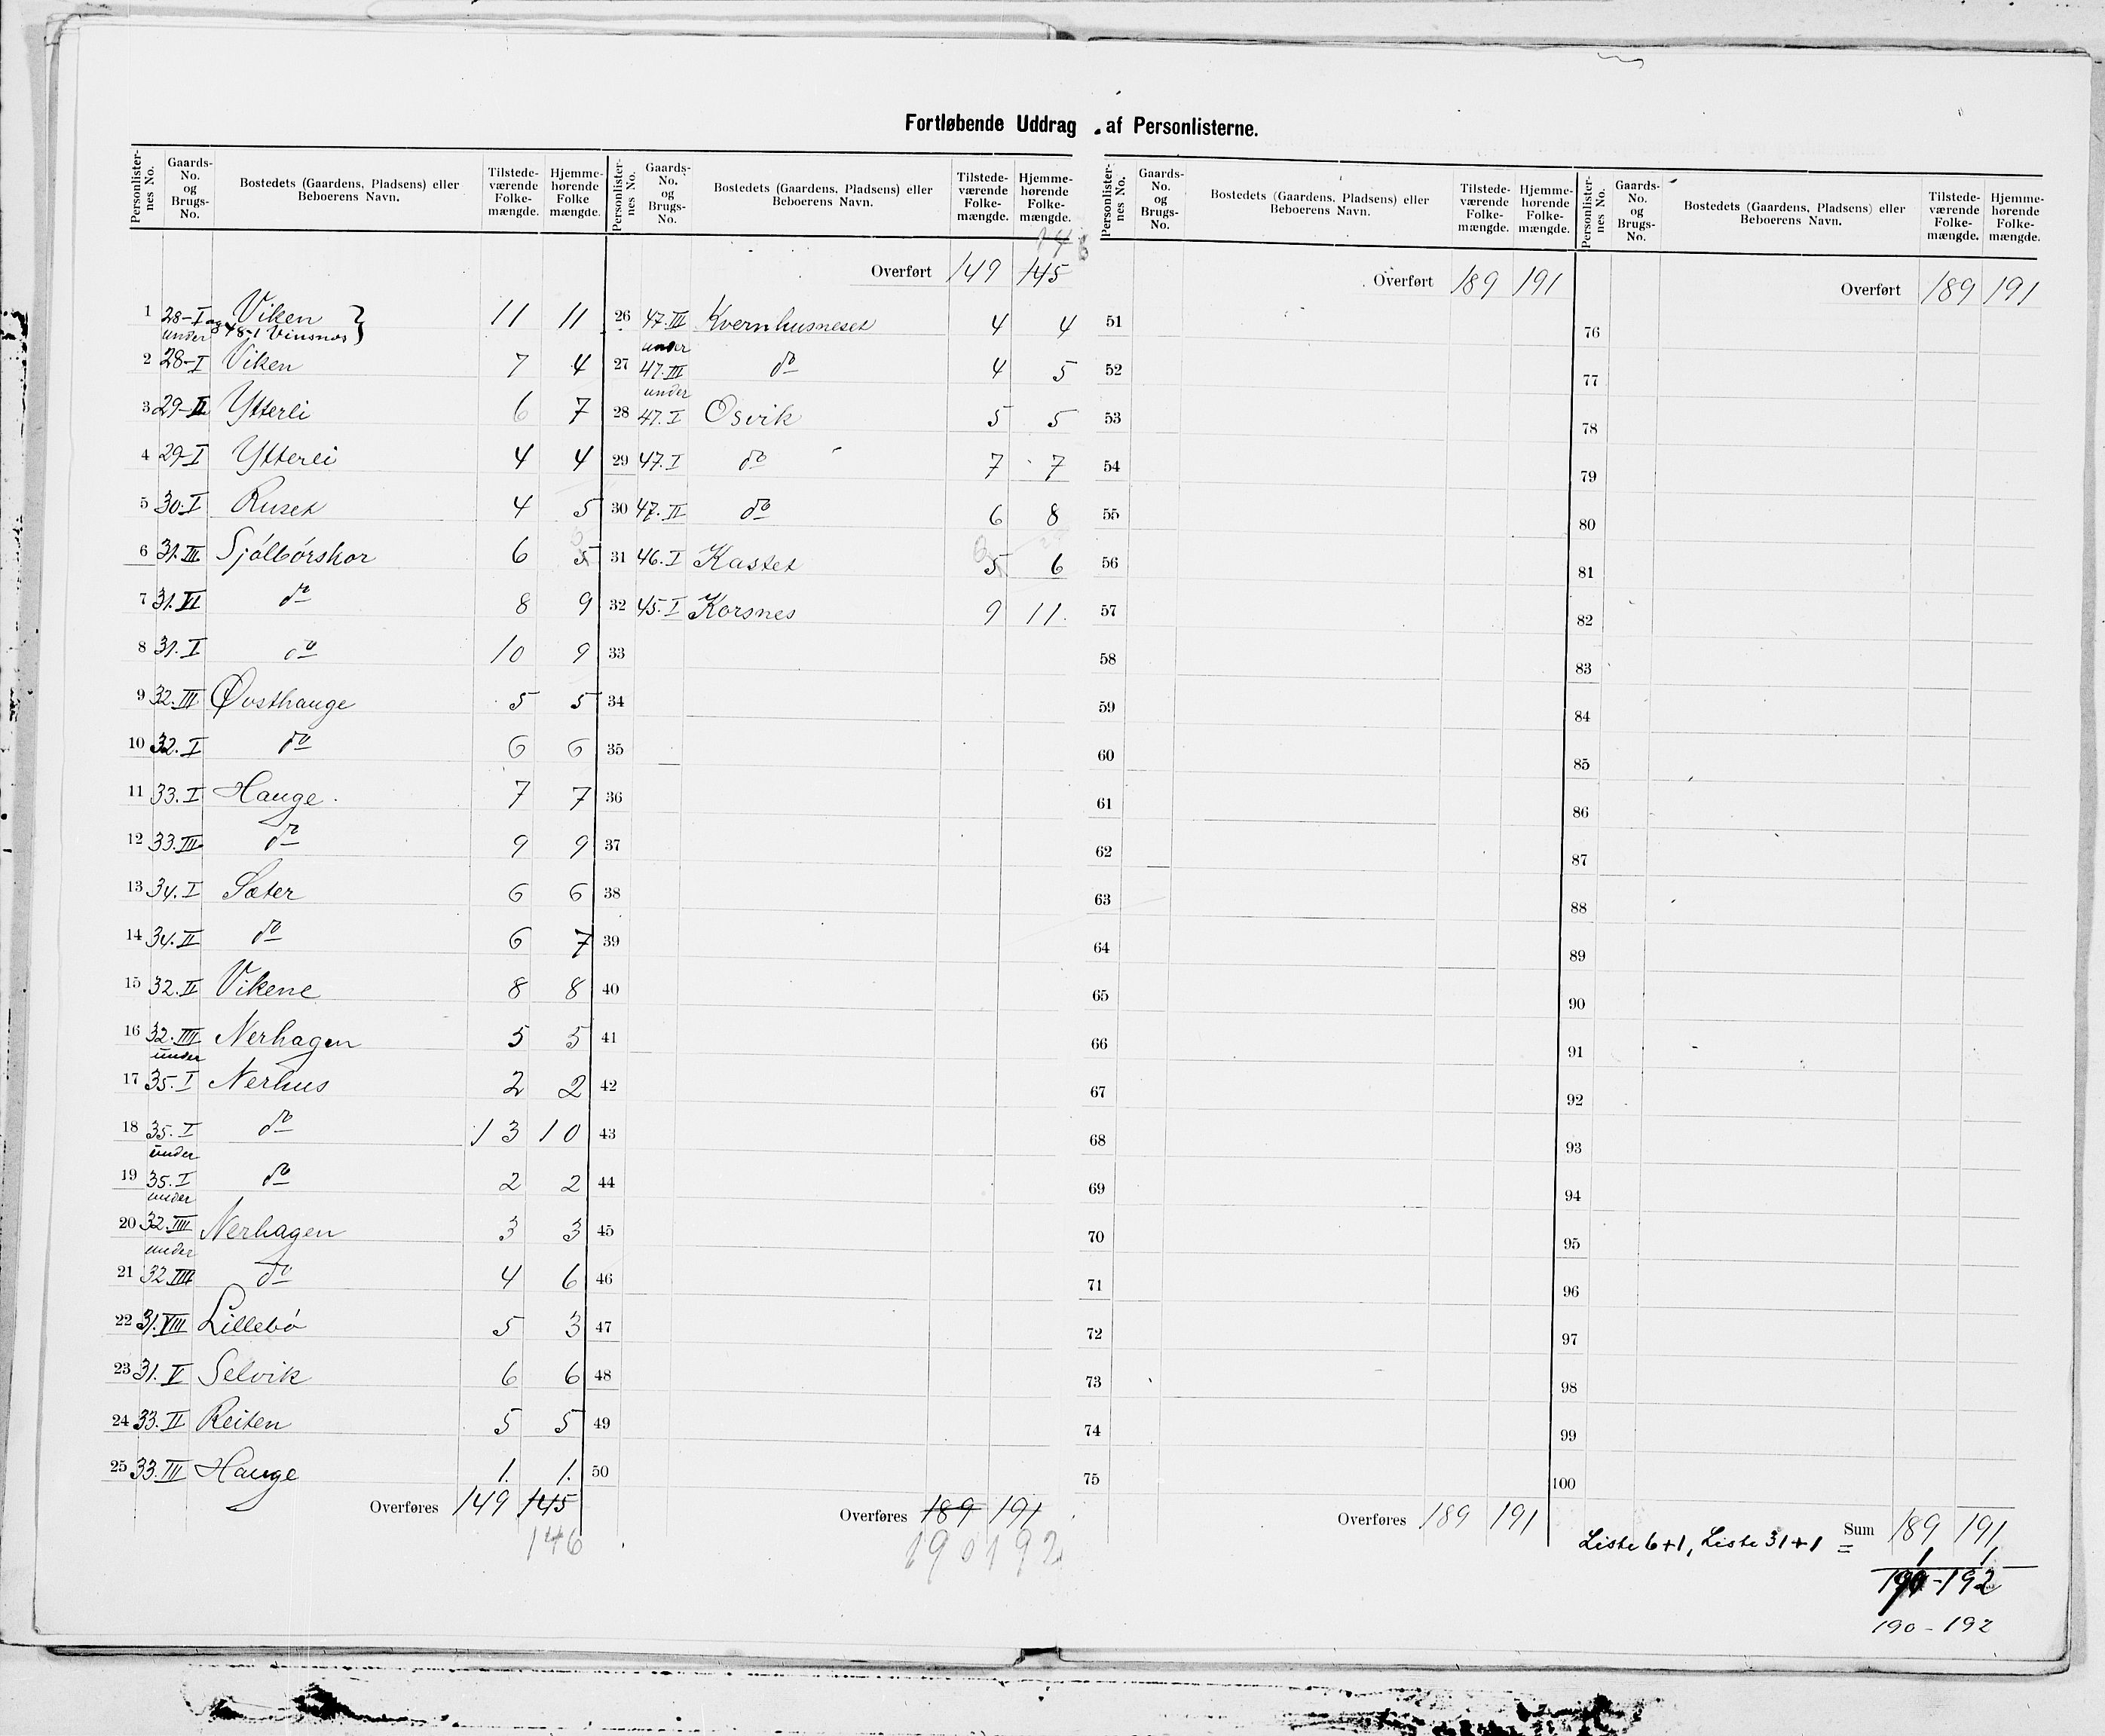 Fortløbende Uddrag af Personlisterne.
Personlister-nes No. Gaards-No. og Brugs-No. Bostedets (Gaardens, Pladsens) eller Beboerens Navn. Tilstede-værende Folke-mængde. Hjemme-hørende Folke mængde.
1 28-I Viken 11 11
under og 48-1 Vinsnes
2 28-I Viken 7 4
3 29-II Ytterli 6 7
4 29-I Ytterli 4 4
5 30.I Ruset 4 5
6 31.III Sjölbörskor 6 5
7 31.VI do 8 9
8 31.I do 10 9
9 32.III Øvsthauge 5 5
10 32.I do 6 6
11 33.I Hauge. 7 7
12 33.III do 9 9
13 34.I Sæter 6 6
14 34.II do 6 7
15 32.II Vikene 8 8
16 32.IIII Nerhagen 5 5
under
17 35.I Nerhus 2 2
18 35.I do 13 10
under
19 35.I do 2 2
under
20 32.IIII Nerhagen 3 3
under
21 32 IIII do 4 6
22 31.VIII Lillebö 5 3
23 31.V Selvik 6 6
24 33.II Reiten 5 5
25 33.III Hauge 1. 1.
Overføres 149 145
146
Personlister-nes No. Gaards-No. og Brugs-No. Bostedets (Gaardens, Pladsens) eller Beboerens Navn. Tilstede-værende Folke-mængde. Hjemme-hørende Folke-mængde.
146
Overført 149 145
26 47.III Kvernhusneset 4 4
under
27 47.III do 4 5
under
28 47.I Osvik 5 5
29 47.I do 7 7
30 47.II do 6 8
31 46.I Kastet 5 6
32 45.I Korsnes 9 11.
33
34
35
36
37
38
39
40
41
42
43
44
45
46
47
48
49
50
Overføres 189 191
190 192
Personlister-nes No. Gaards-No. og Brugs-No. Bostedets (Gaardens, Pladsens) eller Beboerens Navn. Tilstede-værende Folke-mængde. Hjemme-hørende Folke-mængde.
Overført 189 191
51
52
53
54
55
56
57
58
59
60
61
62
63
64
65
66
67
68
69
70
71
72
73
74
75
Overføres 189 191
Personlister-nes No. Gaards-No. og Brugs-No. Bostedets (Gaardens, Pladsens) eller Beboerens Navn. Tilstede-værende Folke-mængde. Hjemme-hørende Folke-mængde.
Overført 189 191
76
77
78
79
80
81
82
83
84
85
86
87
88
89
90
91
92
93
94
95
96
97
98
99
100
Liste 6+1, Liste 31+1 = Sum 189 191
1 1
190-192
190-192